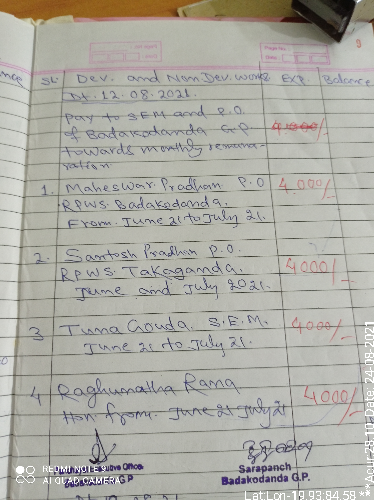 9
nce Sl. Dev. and Non Dev. works Exp. Balance
Dt. 12.08.2021.
Pay to SEM and P.O
of Badakodanda G.P
towards monthly remune-
ration
1. Maheswar Pradhan P.O 4.000/-
RPWS. Badakodanda.
From. June 21 to July 21.
2. Santosh Pradhan P.O. 4000/-
RPWS. Takaganda.
June and July 2021.
3 Tuna Gouda. S.E.M. 4000/-
June 21 to July 21.
4 Raghunatha Rana 4000/-
Hon from. June 21 July 21
Sarapanch
Badakodanda G.P.
REDMI NOTE 9
AI QUAD CAMERA
Lat Lon-19.93,84.58
Acur.28.1 Date: 24-08-2021